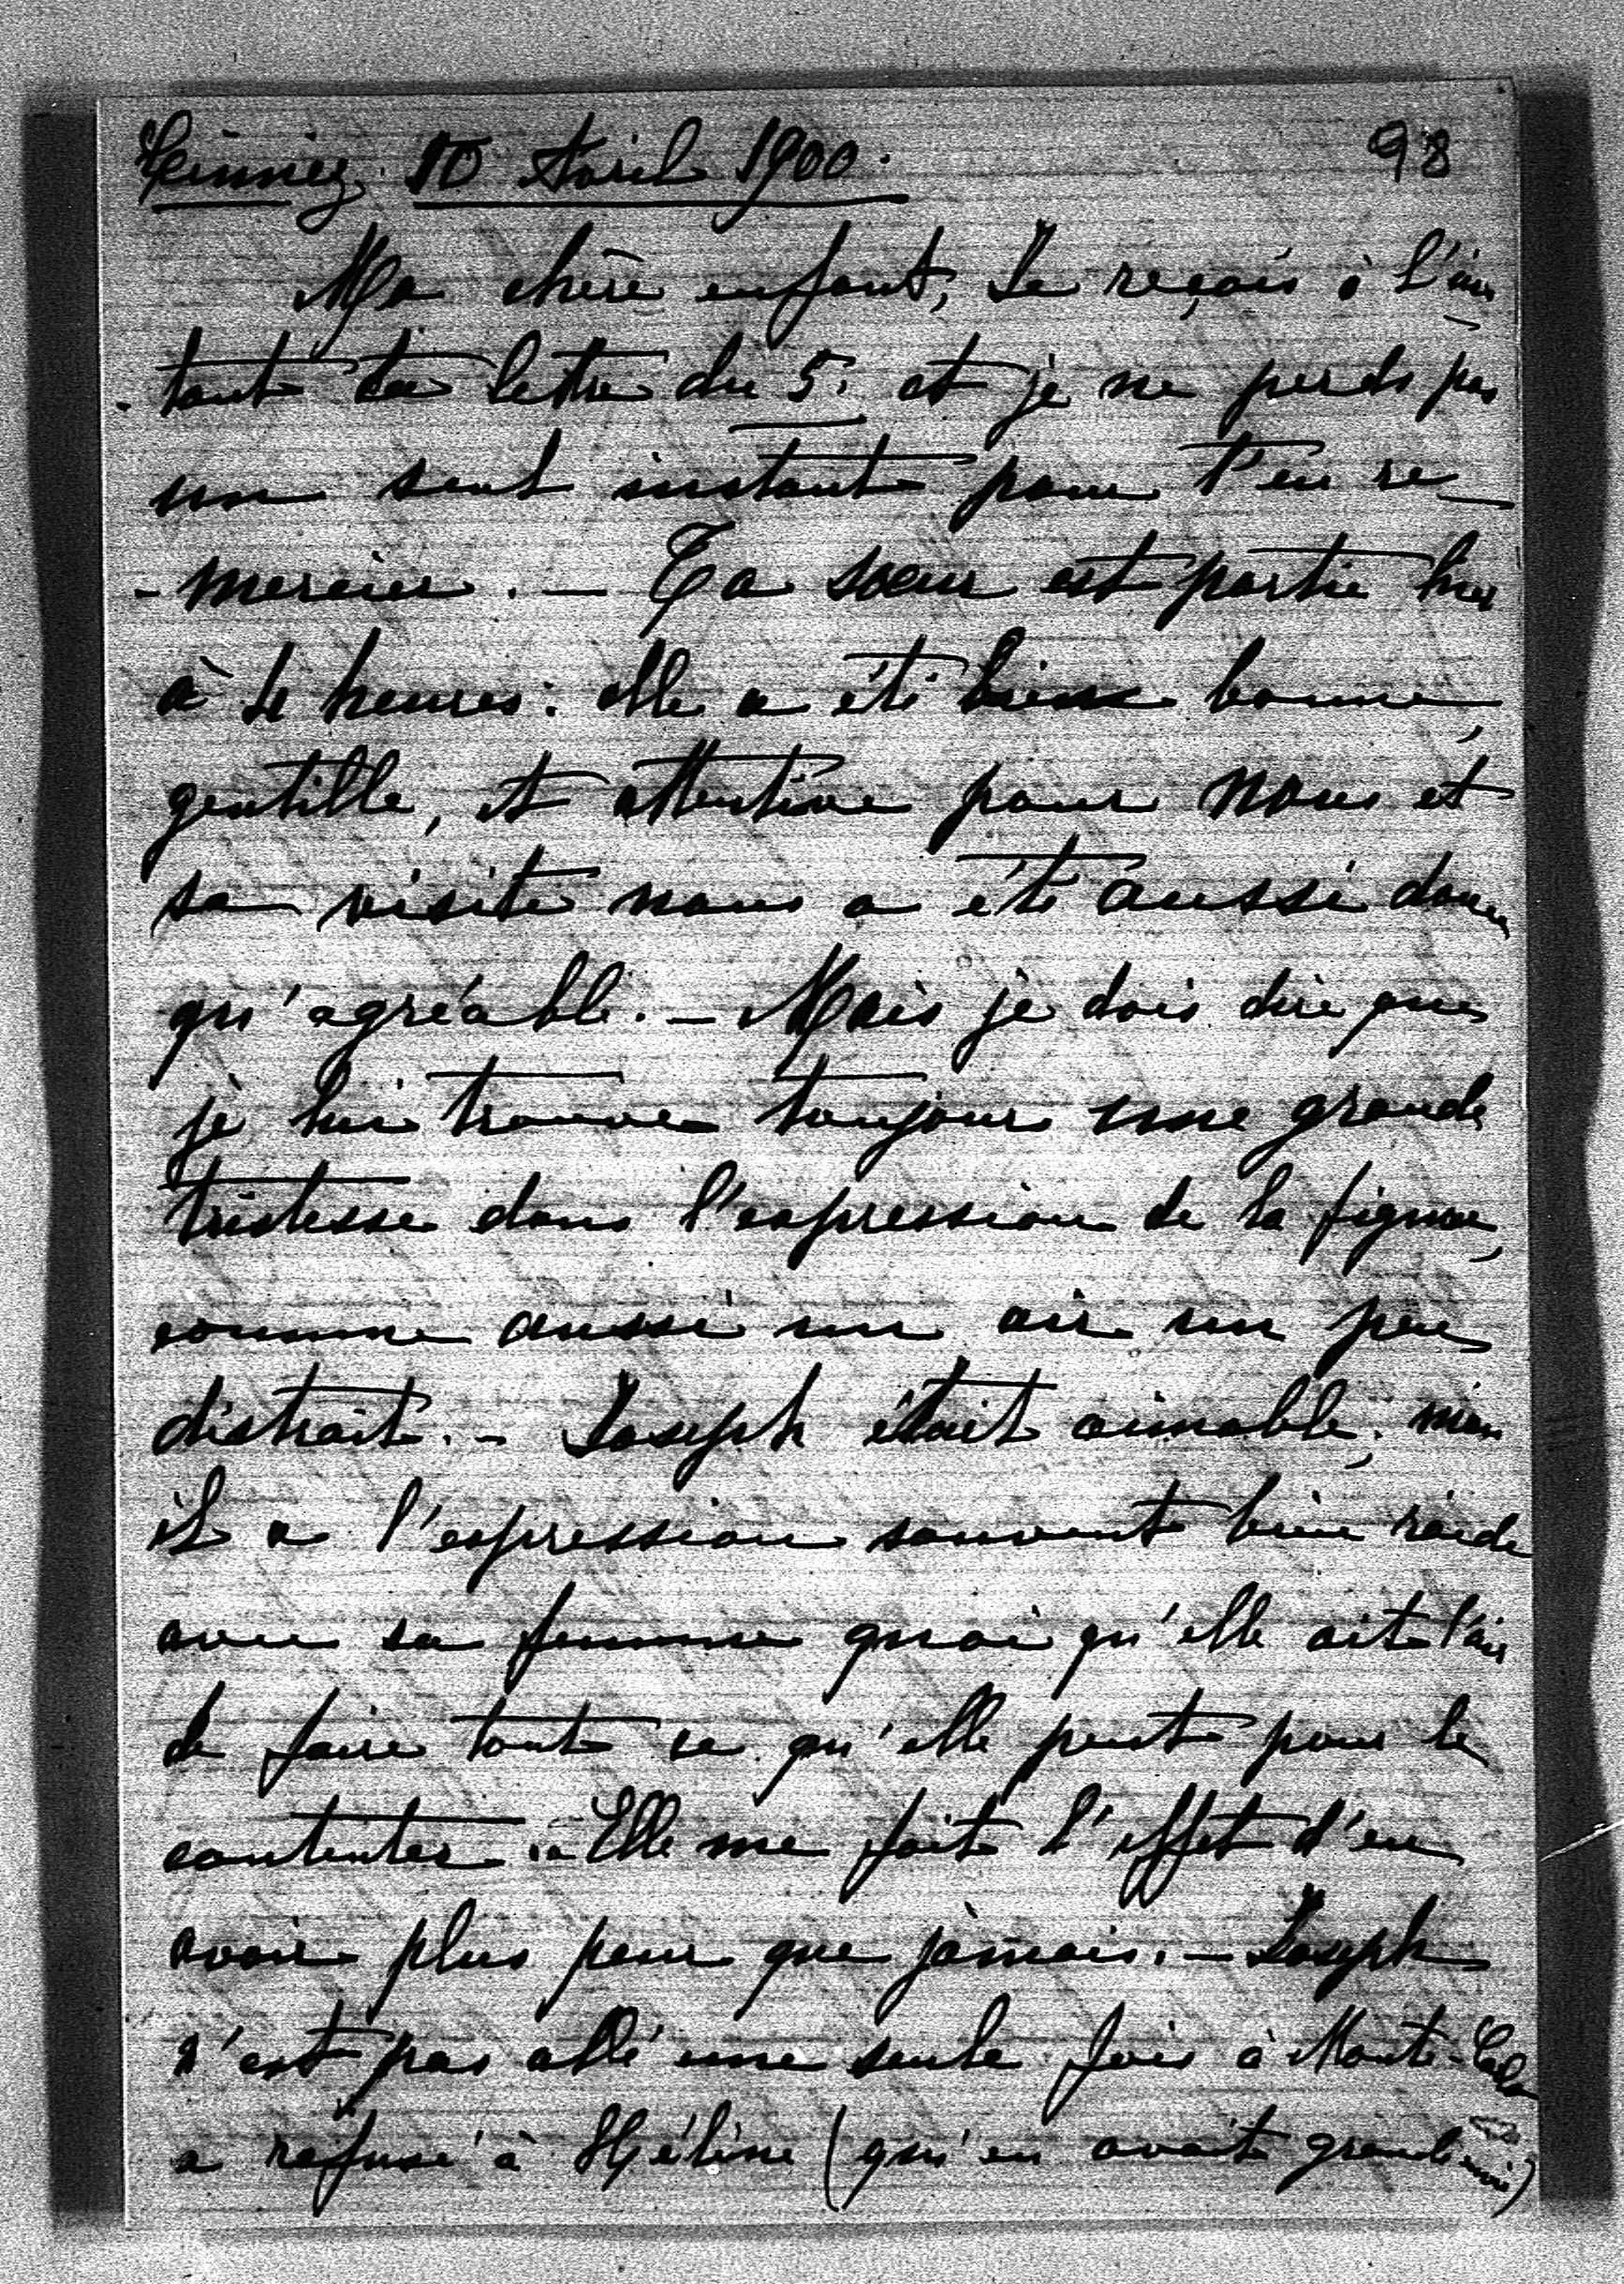 10 Avril 1900. 98
Ma chère enfant, Je reçois à l'ins
-tant ta lettre du 5. et je ne perds pas
un seul instant pour t'en re-
-mercier. — Ta sœur est partie hier
à 4 heures: elle a été bien bonne,
gentille, et attentive pour nous et
sa visite nous a été aussi douce
qu'agréable. — Mais je dois dire que
je lui trouve toujours une grande
tristesse dans l'expression de la figure,
comme aussi un air un peu
distrait. — Joseph était aimable, mais
il a l'expression souvent bien raide
avec sa femme quoiqu'elle ait l'air
de faire tout ce qu'elle peut pour le
contenter. — Elle me fait l'effet d'en
avoir plus peur que jamais. — Joseph
n'est pas allé une seule fois à Monte-Carlo
a refusé à Hélène (qu'en avait grande envie)